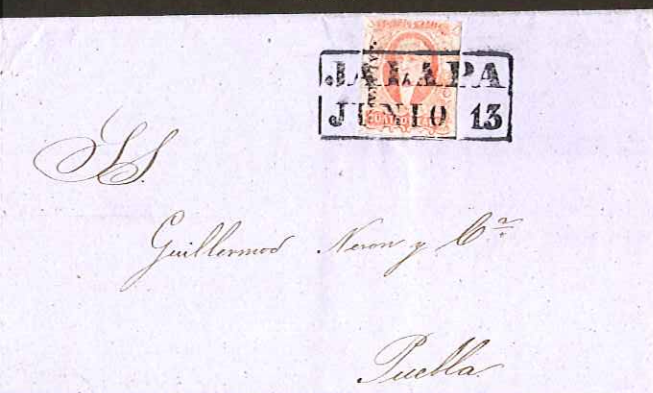 JALAPA
JUNIO 13
S.S.
Guillermod Neron y Cª
Puebla